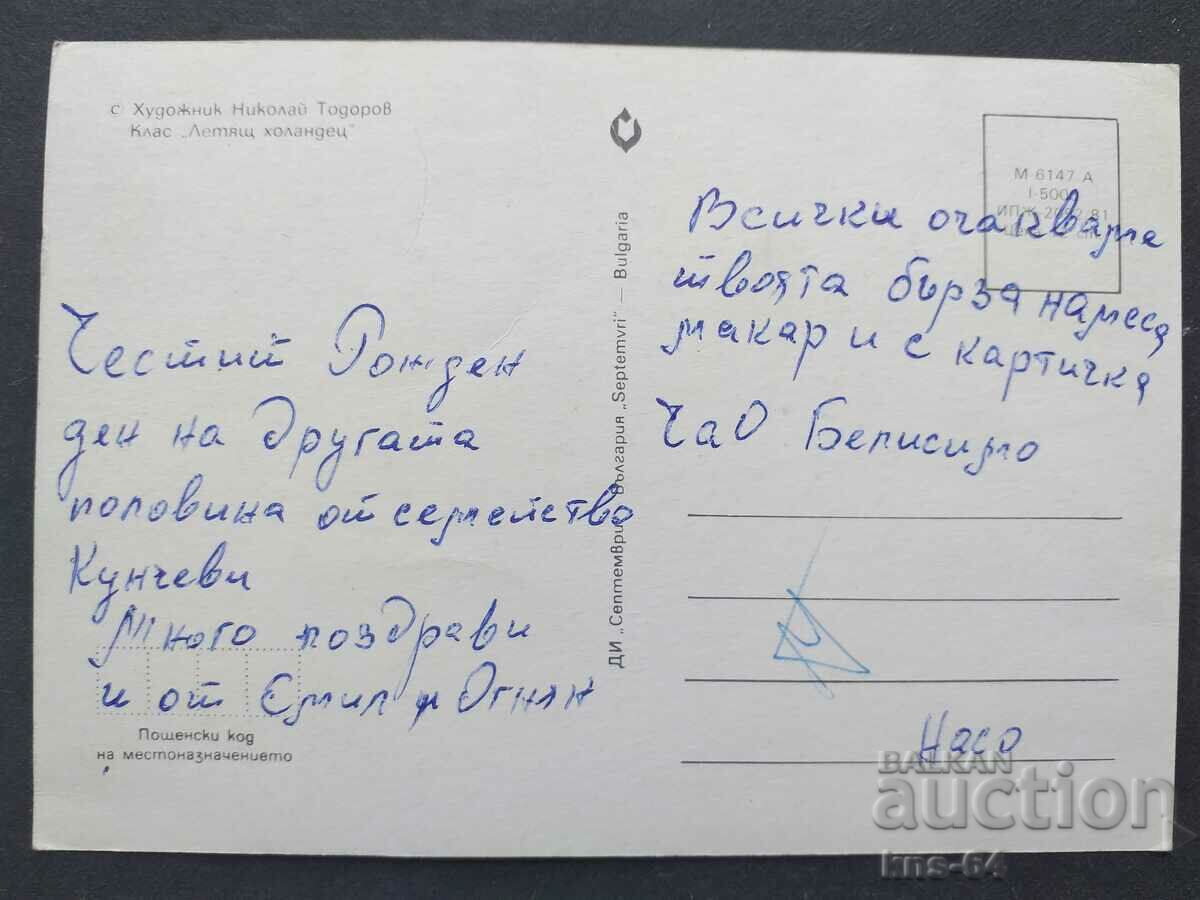 с Художник Николай Тодоров
Клас „Летящ холандец"
Честит Рожден
ден на другата
половина от семейство
Кунчеви
Много поздрави
и от Емил и Огнян
Пощенски код
на местоназначението
ДИ „Септември" България „Septemvri" — Bulgaria
М 6147 А
I-500
ИПЖ
81
Всички очакваме
твоята бърза намеса
макар и с картичка
Чао Белисимо
Насо
BALKAN
auction
kns-64